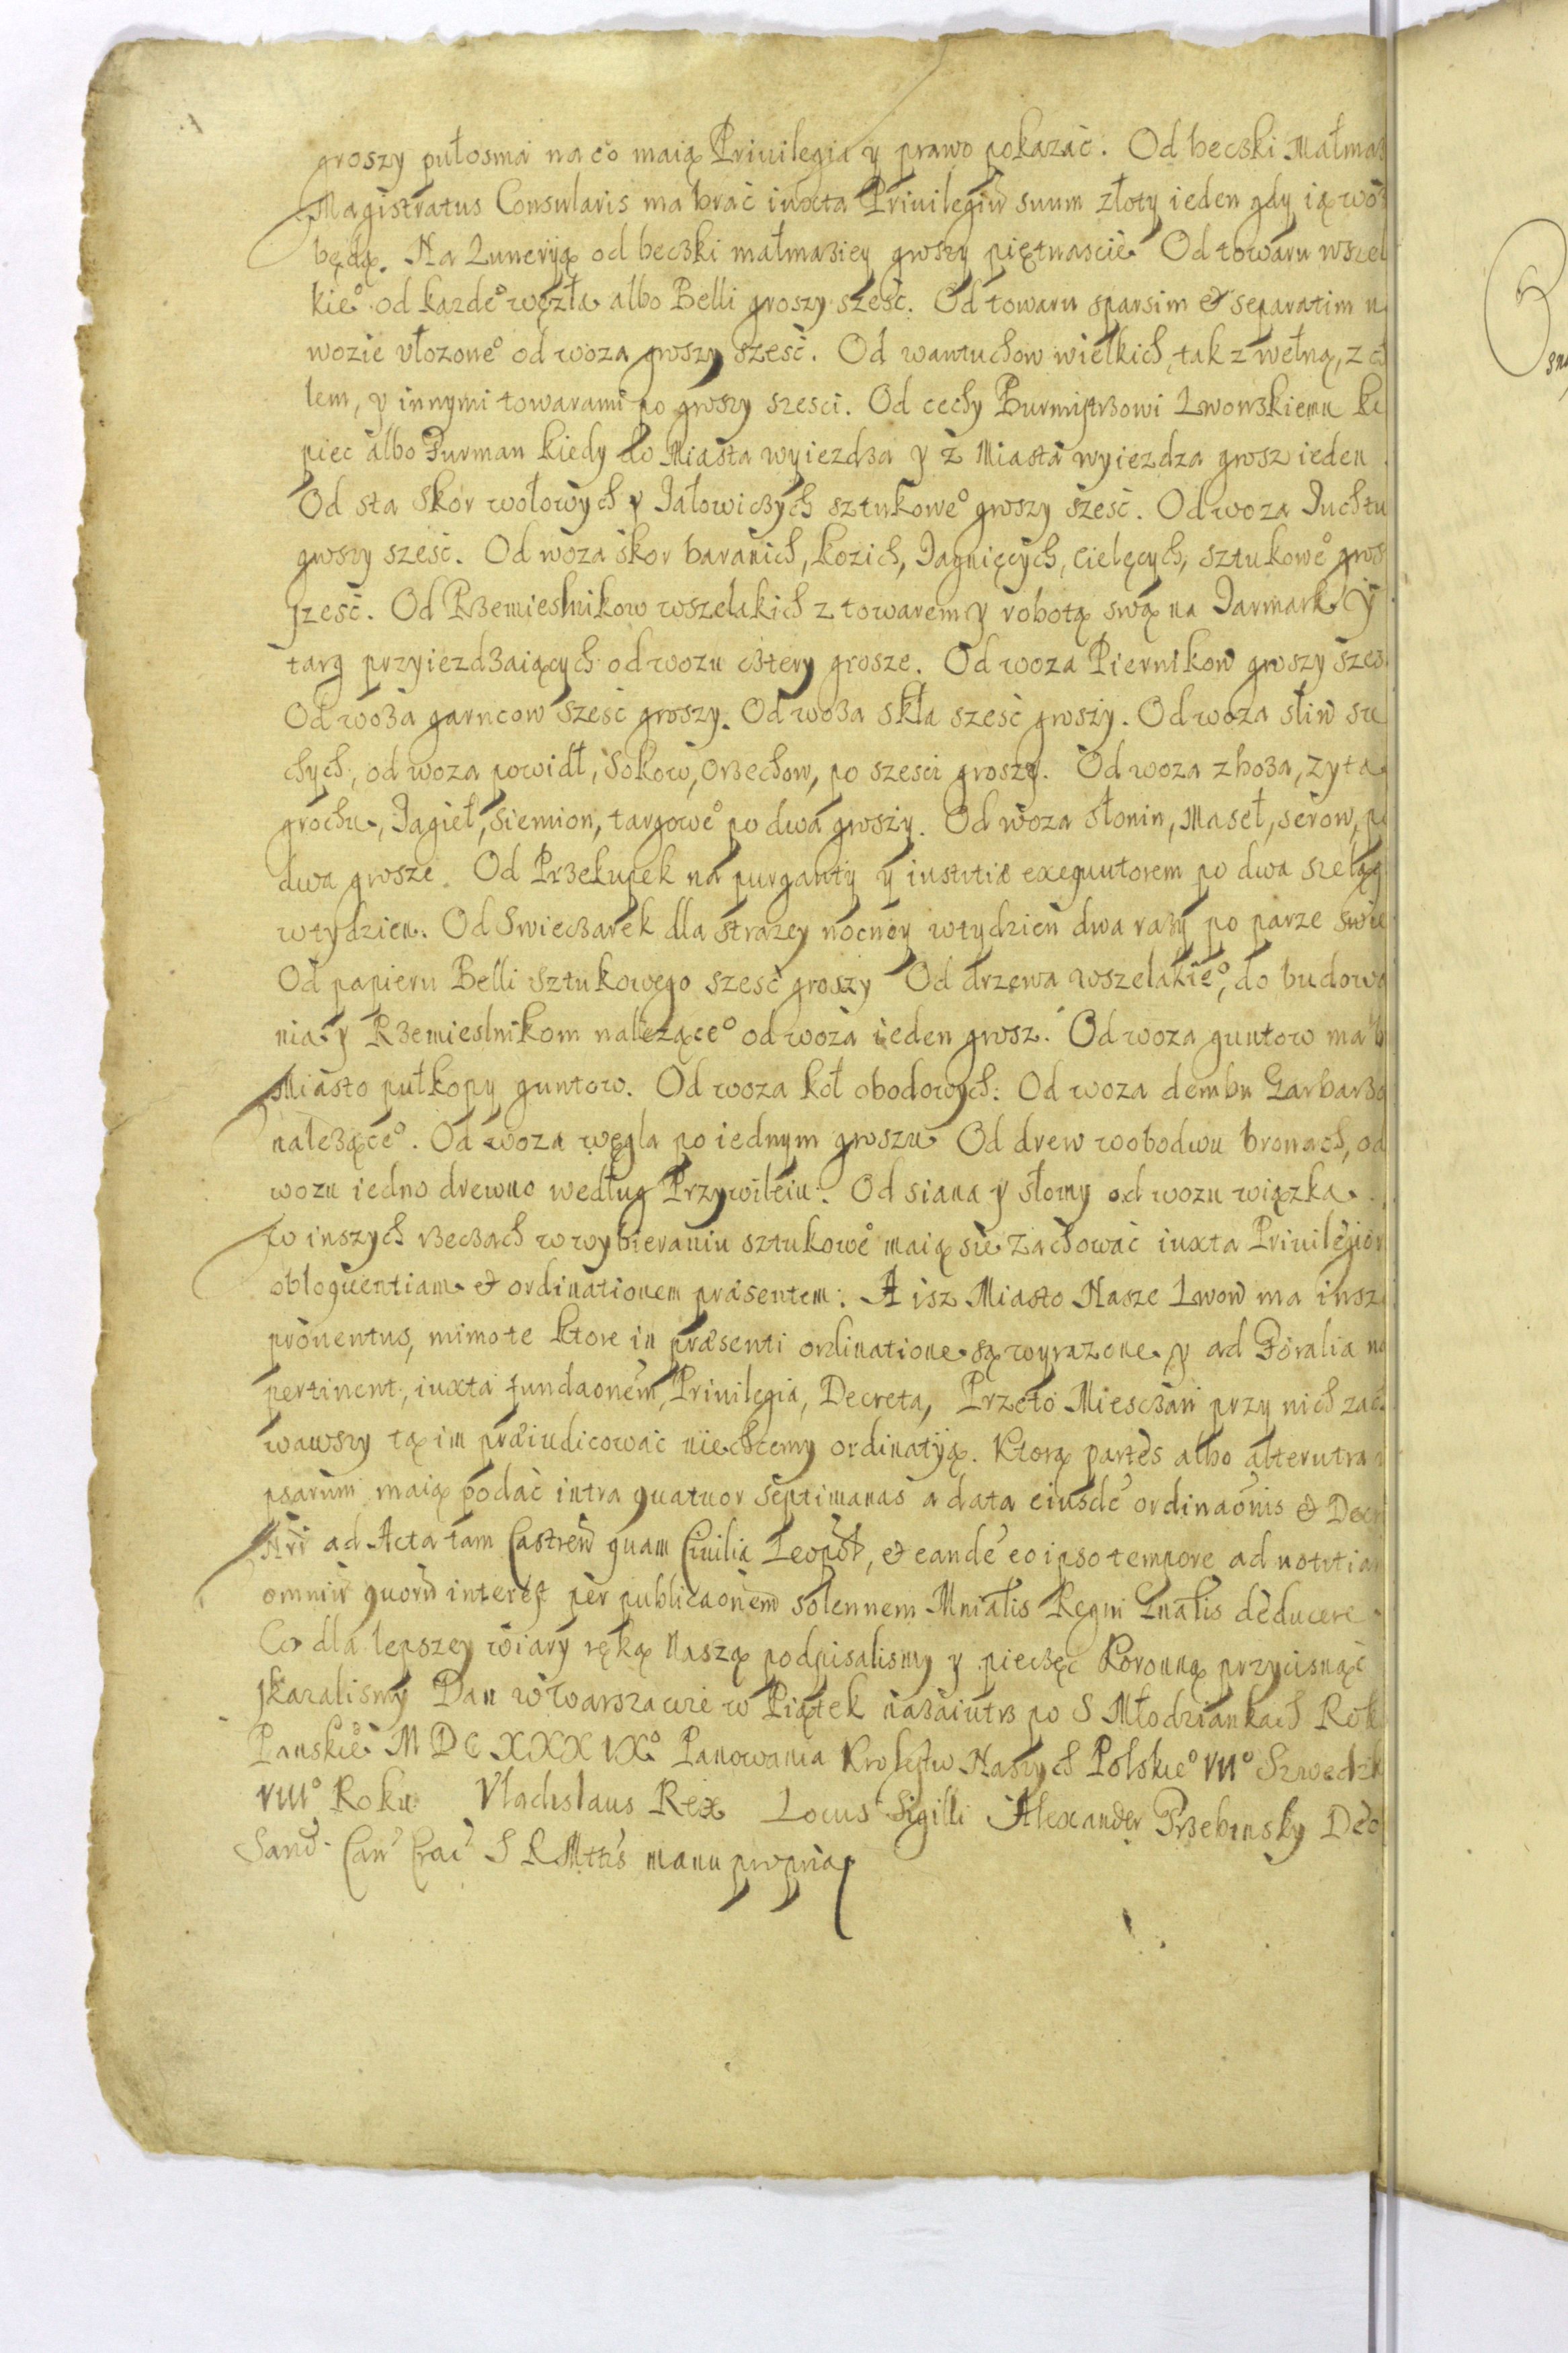 groszy pułosma na co maią Priuilegia y prawo pokazac. Od beczki Małmaz
Magistratus Consularis ma brac iuxta Priuilegiū suum złoty ieden gdy ią woz
będą. Na Luneryią od beczki małmaziey groszy piętnascie Od towaru wszel
kie° od kazde° węzła albo Belli groszy szesc. Od towaru sparsim & separatim n
wozie vłozone° od woza groszy szesc. Od wantuchow wielkich, tak z wełną, z
lem, y innymi towarami po groszy szesci. Od cechy Burmistrzowi Lwowskiemu
piec albo Furman kiedy do Miasta wyiezdza y z Miasta wyiezdza grosz ieden
Od sta skor wołowych y Iałowiczych sztukowe° groszy szesc. Od woza Iuchtu
groszy szesc. Od woza skor baranich, kozich, Iagnięcych, cielęcych, sztukowe° gros
szesc. Od Rzemieslnikow wszelakich z towarem y robotą swą na Iarmark y
targ przyiezdzaiących od wozu cztery grosze. Od woza Piernikow groszy szes
Od woza garncow szesc groszy. Od woza skła szesc groszy. Od woza sliw su
chych, od woza powidł, Sokow, orzechow, po szesci groszy. Od woza zboza, zyta
grochu, Iagieł, siemion, targowe° po dwa groszy. Od woza słonin, Maseł, serow, p
dwa grosze. Od Przekupek na purganty y iustitiæ exequutorem po dwa szeląg
wtydzien. Od Swieczarek dla strazey nocney wtydzien dwa razy po parze swie
Od papieru Belli sztukowego szesc groszy Od drzewa wszelakie°, do budowa
nia y Rzemieslnikom nalezące° od woza ieden grosz. Od woza guntow ma b
Miasto pułkopy guntow. Od woza koł obodowych: Od woza dembu Garbarzo
nalezące°. Od woza węgla po iednym groszu Od drew wobodwu bronach, od
wozu iedno drewno według Przywileiu. Od siana y słomy od wozu wiązka.
w inszych rzeczach w wybieraniu sztukowe° maią sie zachowac iuxta Priuilegior
obloquentiam & ordinationem præsentem. A isz Miasto Nasze Lwow ma insz
prouentus, mimo te ktore in præsenti ordinatione są wyrazone y ad Foralia no
pertinent, iuxta fundaonem, Priuilegia, Decreta, Przeto Mieszczan przy nich zach
wawszy tą im præiudicowac niechcemy ordinatyią. Ktorą partes albo alterutra i
psarum maią podac intra quatuor septimanas a data eiusdē ordinaōnis & Decr
Nri ad Acta tam Castreñ quam Ciuilia Leopol, & eandē eo ipso tempore ad notitiam
omniū quorū interest per publicaonem solennem Mnialis Regni Gnalis deducere.
Co dla lepszey wiary ręką Naszą podpisalismy y pieczęc Koronną przycisnąc
skazalismy Dan w Warszawie w Piątek nazaiutrz po S Młodziankach Rok
Panskie° M D C XXX IX° Panowania Krolestw Naszych Polskie° VII° Szwedzk
VIII° Roku Vladislaus Rex Locus Sigilli Alexander Trzebinsky Dec
Sand Can Crac S R Mttis manu propria